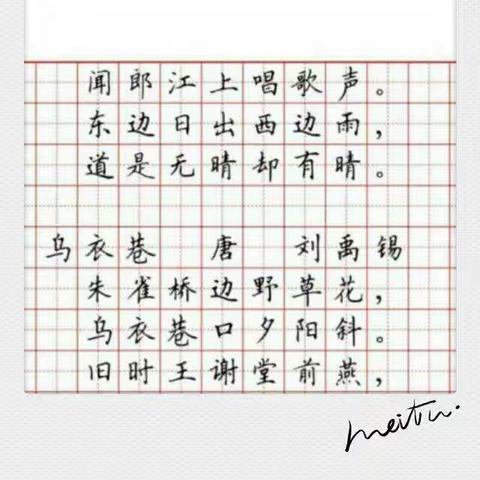 闻郎江上唱歌声。
东边日出西边雨，
道是无晴却有晴。
乌衣巷 唐 刘禹锡
朱雀桥边野草花，
乌衣巷口夕阳斜。
旧时王谢堂前燕，
meitu.